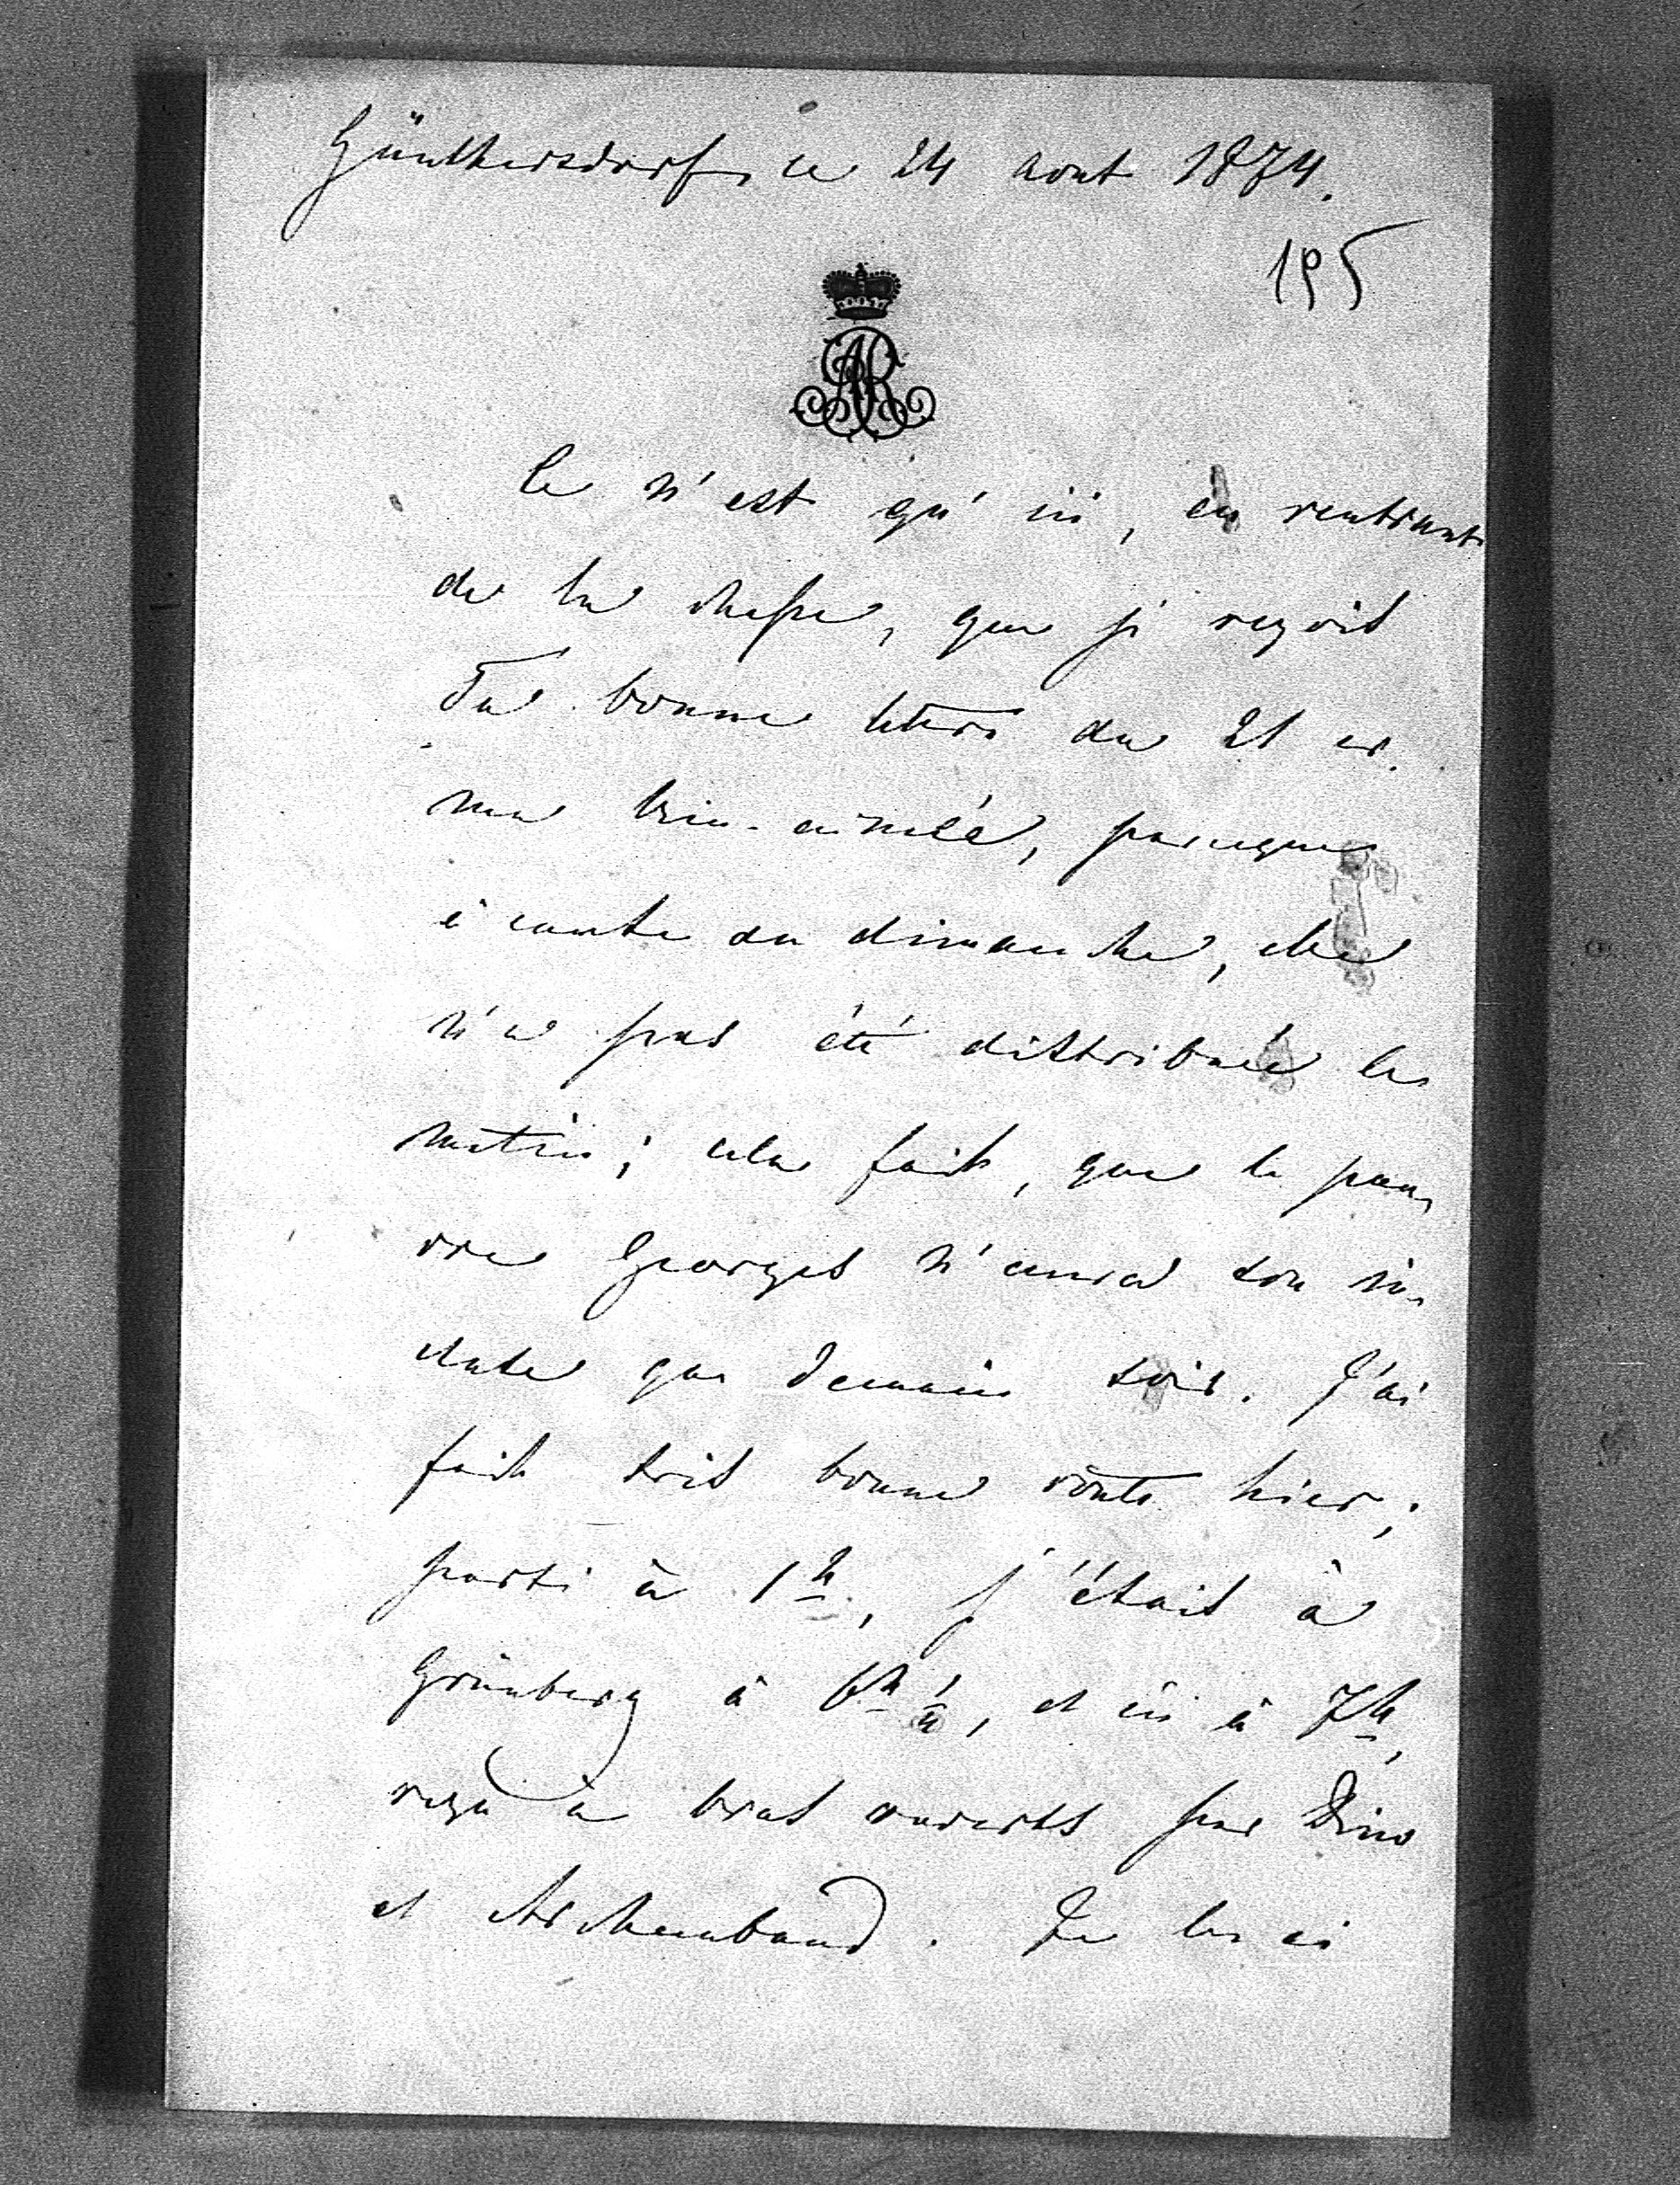 Günthersdorf, ce 24 aout 1874.
195
AR
Ce n'est qu'ici, en rentrant
de la chasse, que je reçois
Ta bonne lettre du 21 cr.
ma bien-aimée, parceque
à cause du dimanche, elle
n'a pas été distribuée le
matin; cela fait, que le pau,
vre Georges n'aura son
que demain soir. J'ai
fait très bonne route hier;
parti à 1h, j'étais à
Grünberg à 6h ¼, et ici à 7h,
reçu à bras ouverts par Dino
et . De là ci